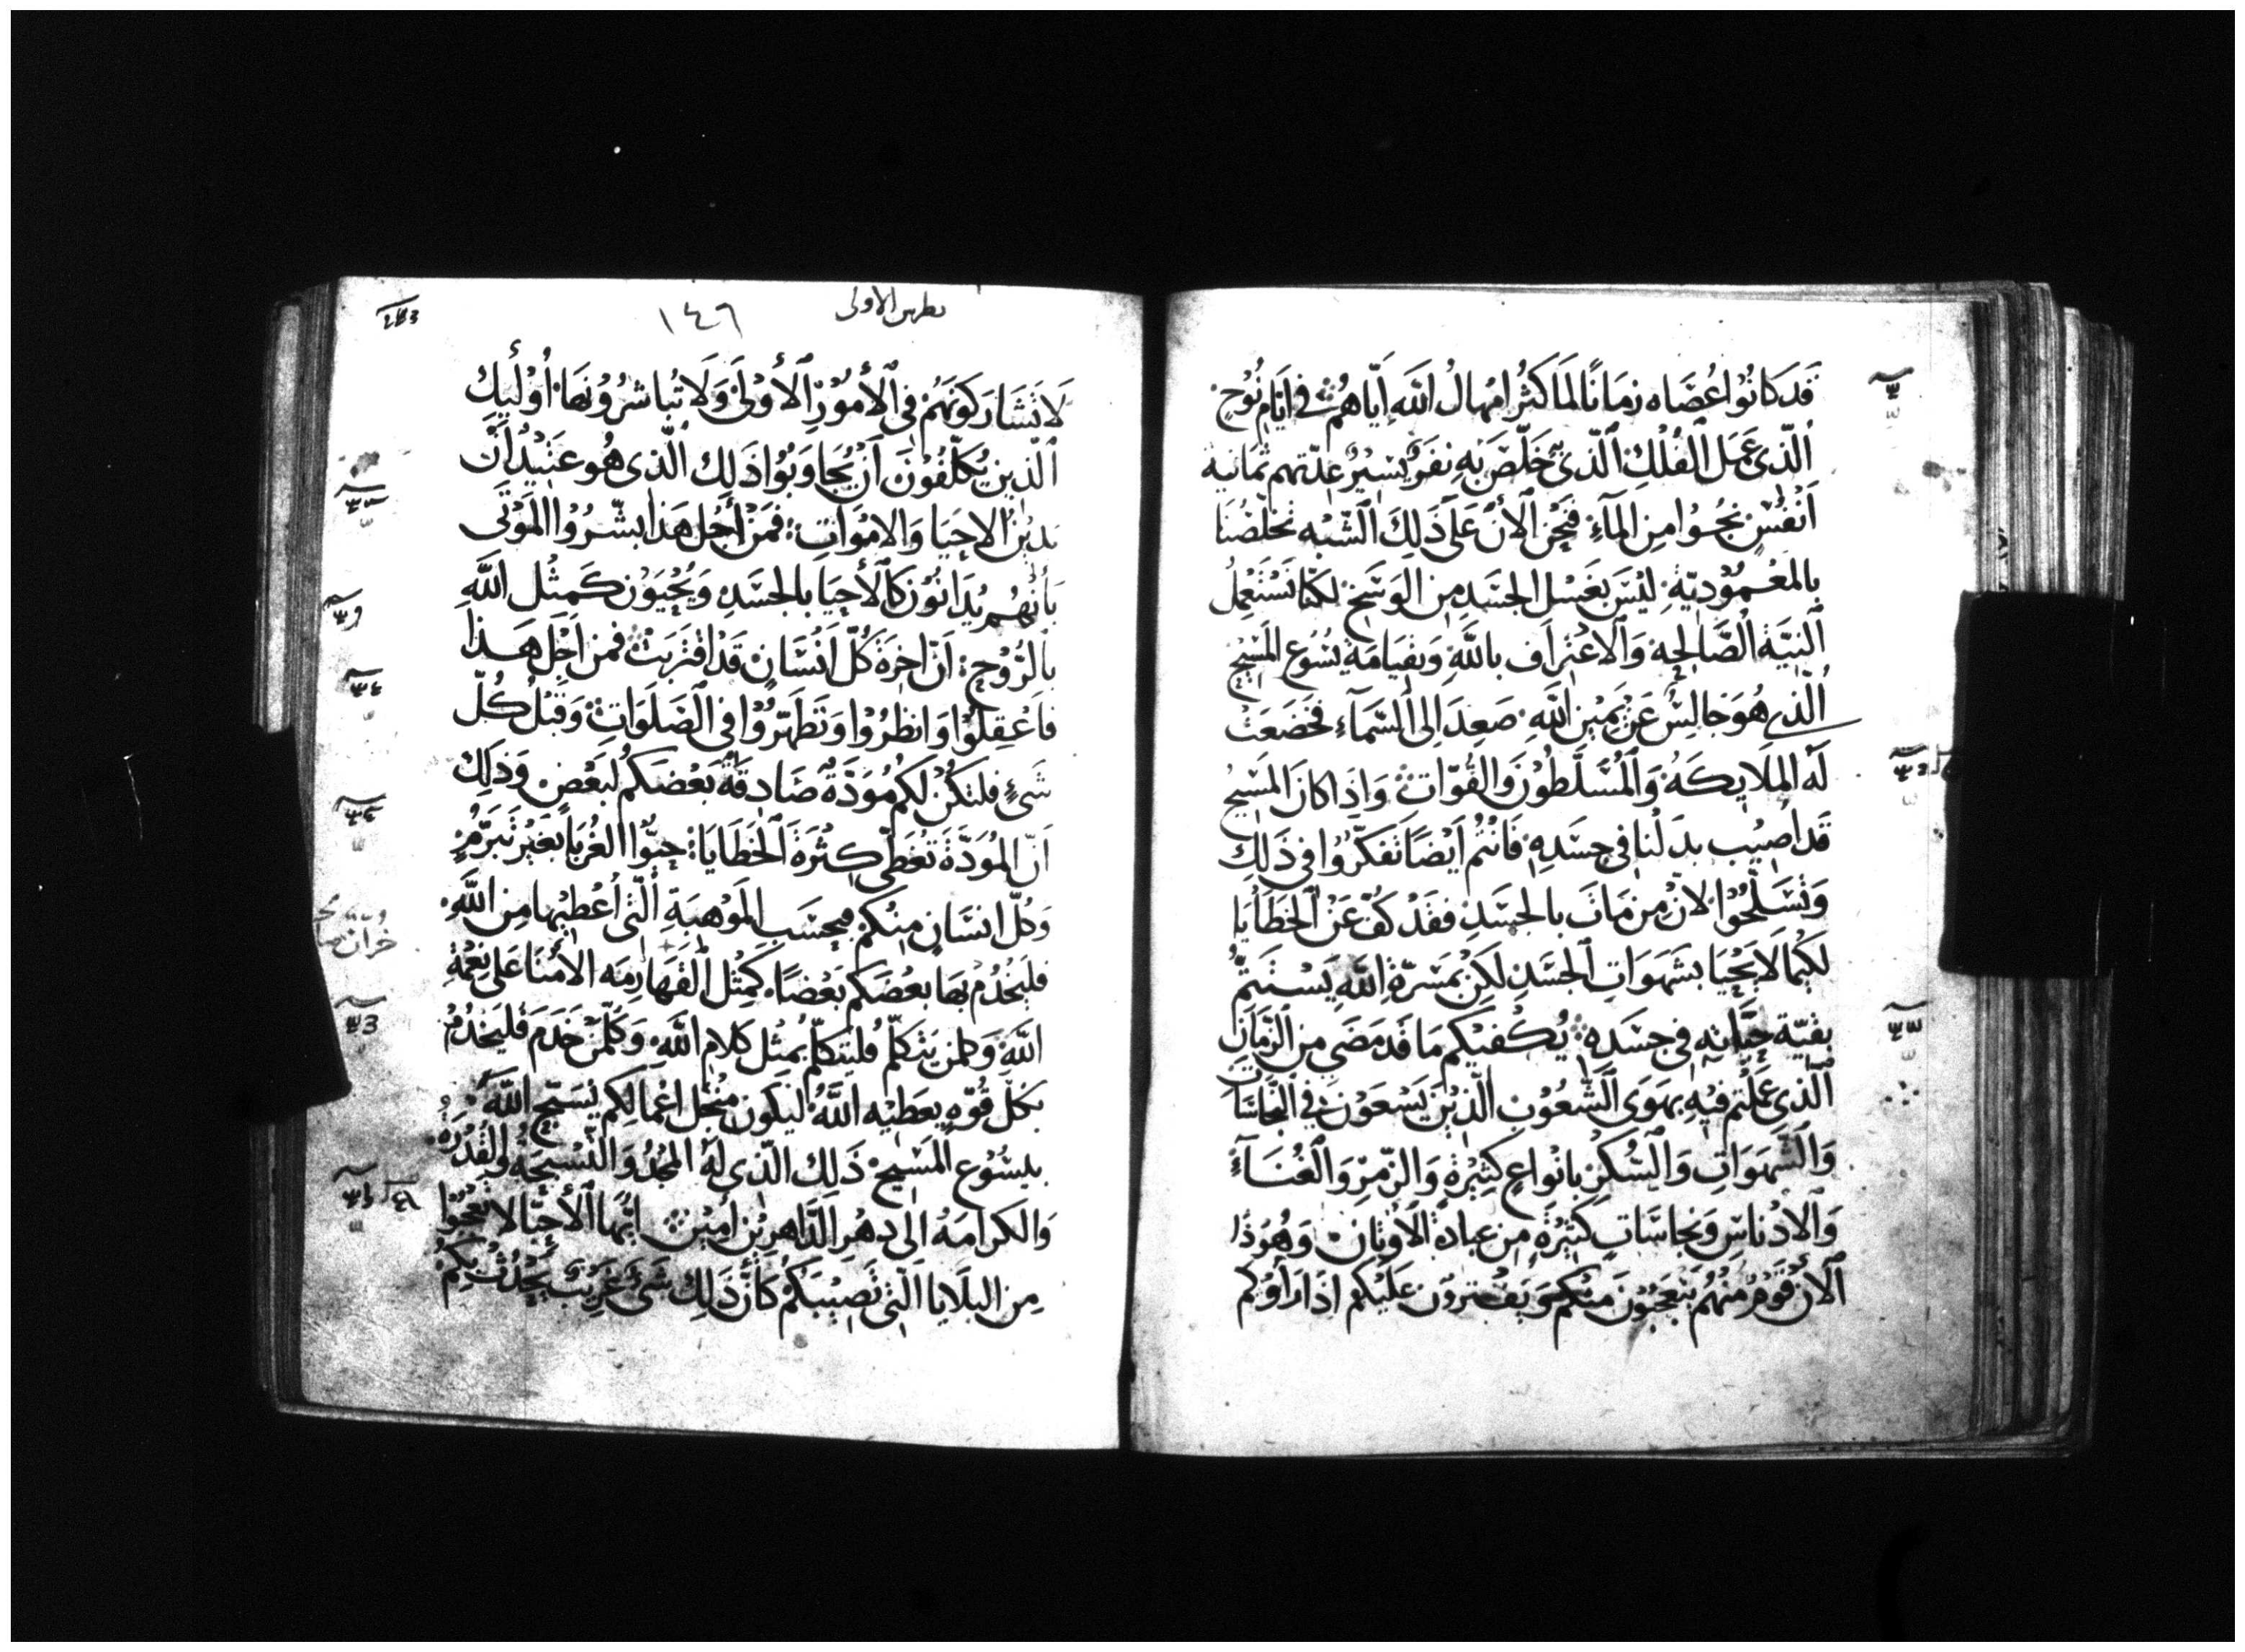 قَد كَانُوا عُصَاه زمَانًا لمَا كَثُر امْهالُ اللَّه ايّاهُم في ايَّامِ نُوْحٍ
الّذي عَمَل الفُلْك الّذي خَلّصَ بهِ نفَرٌ يَسِيْرٌ عدّتهم ثمانية
أنْفُسٍ نجُوا مِن المآءِ فنَحْن الأنْ عَلى ذَلِكَ الشبْه تخلّصُنَا
بالمعْمُوْديّةِ ليْسَ بغَسْل الجسَدِ مِن الوَسَخ لكنّا نَسْتَعْمِلُ
النيّةِ الصَّالحِه وَالاعْتِرَاف باللَّهِ وَبقيَامَة يسُوع المَسيْح
الّذي هُوَ جَالِسٌ عَنْ يَمِيْن اللَّهِ صَعِدَ الى السّمَآءِ فخَضَعَتْ
لَه المَلايكَةُ وَالمُسَلَّطُوْنَ وَالقُوّاتِ وَاذَا كانَ المَسيْحُ
قَد اصِيْب بدَلْنا في جسَدِهِ فَانتُم ايْضًا تَفكّرُوا في ذَلِكَ
وَتسَلّحُوْا لانْ مَن مَاتَ بالجسَدِ فقَدْ كُفّ عَنْ الخَطَايَا
لكيْما لَا يَحْيَا بشَهَوَاتِ الجَسَدِ لكِنْ بمَسَرّةِ اللَّهِ يَسْتَتمُّ
بقيّة حيَاتِه في جسَدِهِ يُكْفيْكم مَا قَد مَضَى مِن الزّمَانِ
الّذي عَمِلْتم فيْهِ بهَوَى الشُعُوْب الّذِيْنَ يَسْعَوْنَ في النجَاسَات
وَالشَهَوَاتِ وَالسُكْرْ بانْوَاعٍ كثِيْرَةٍ وَالزّمْرِ وَالغُنَآءْ
وَالادْنَاسِ وَنجَاسَاتٍ كَثِيْرَةٍ مِن عبادَة الاوْثانْ وَهُوَذَا
الآنْ قَوْمٌ مِنْهُم يَتَعَجبُونَ مِنْكم وَيَفترُونَ عَلَيْكم اذَا رَأوْكم
بطرس الاولى
١٤٦
لَا تَشَارَكوْنَهُم فِى الأمُوْرِ الأوْلَى وَلَا تُباشرُوْنهَا اوْلَيِكَ
الّذِين يُكَلّفُوْنَ أنْ يُجَاوَبُوا ذَلِك الّذي هُو عَتيْدٌ أنْ
يَدِيْن الاحيَا وَالامْوَاتِ فمَنْ أجْل هَذا بشّرُوا المَوْتَى
بأنَّهُم يُدَانُوْن كالأحيَا بالجسَدِ وَيُحْيَوْن كَمِثْل اللَّهِ
بالرُّوْحِ انّ اخِرَة كُلّ انْسَانٍ قَدْ اقتَرَبَتْ فمن اجْل هَذا
فاعْقِلوْا وَانظرُوْا وَتَطَهّرُوْا فى الصَلَوَاتِ وَقبْلُ كُلّ
شَىءٍ فلتَكُنْ لكمُ مُوَدّةٌ صَادِقَةٌ بَعْضَكُم لبَعْضٍ وَذلِكَ
انّ المُوَدّةَ تغَطّي كثْرَةَ الخَطَايَا حبُّوا الغُربَا بغَيْرِ تَبَرُّمٍ
وَكُلّ انسَانٍ مِنكم فبحسَبِ المَوْهِبَةِ الّتى أعْطِيها مِن اللَّهِ
فليَخْدُمْ بهَا بعْضكم بَعْضًا كَمِثْل القَهَارِمَه الأُمَنا عَلى نِعْمَةِ
اللَّهِ وَكلمَن يَتكلّم فليَتكلّم بمِثْل كلَامِ اللَّهِ وَكُلّمَنْ خَدَمَ فليَخْدُمْ
بكلّ قُوّهٍ يعَطيْه اللَّهُ ليَكونَ مِنْ اجل اعْمالِكم يُسَبّح اللَّهَ
بيسُوْع المَسيْح ذَلِكَ الّذي لَهُ المجْدُ وَالتّسْبحَةُ وَالقُدْرَةُ
وَالكَرامَةُ الى دهْر الدَّاهِرِيْن امِيْن ايُّها الأحبَّا لا تعْجَبُوْا
مِن البَلَايا الّتى تَصِيْبَكُم كَأنّ ذَلِك شَىءٌ غَرِيْبٌ يَحْدُثْ بكمْ